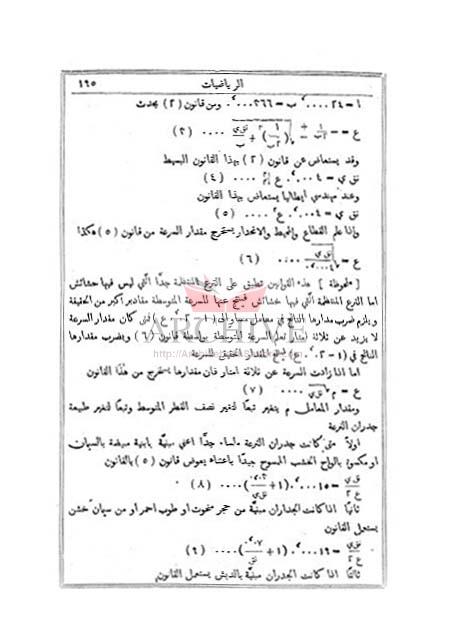 الرياضيات ١٩٥
١ = ٢٤....٠٬ ب = ٣٦٦....٠٬ ومن قانون (٢) يحدث
ع = - ١/٢ب ± √(١/٢ب)² + نق ي/ب .... (٣)
وقد يستعاض عن قانون (٢) بهذا القانون البسيط
نق ي = ٤...٠٬ ع .... (٤)
وعند مهندسي ايطاليا يستعاض بهذا القانون
نق ي = ٤...٠٬ ع² .... (٥)
واذا علم القطاع والمحيط والانحدار يستخرج مقدار السرعة من قانون (٥) هكذا
ع = √نق ي/٤...٠٬ .... (٦)
[ ملحوظة ] هذه القوانين تطبق على الترع المنتظمة جدًا التي ليس فيها حشائش
اما الترع المنتظمة التي فيها حشائش فينتج عنها للسرعة المتوسطة مقادير أكبر من الحقيقة
ويلزم ضرب مقدارها الناتج في معامل مساو الى (١ - ٠٬٢ ع) فمتى كان مقدار السرعة
لا يزيد عن ثلاثة امتار تعلم السرعة المتوسطة بواسطة قانون (٦) وبضرب مقدارها
الناتج في (١ - ٠٬٢ ع) ينتج المقدار الحقيقي للسرعة
ARCHIVE
اما اذا زادت السرعة عن ثلاثة امتار فان مقدارها يستخرج من هذا القانون
ع = م √نق ي .... (٧)
ومقدار المعامل م يتغير تبعًا لتغير نصف القطر المتوسط وتبعًا لتغير طبيعة
جدران الترعة
اولًا متى كانت جدران الترعة ملساء جدًا اعني مبنيّة بابنية مبيضة بالسمان
او مكسوة بالواح الخشب المسوح جيدًا باعتناء يعوض قانون (٥) بالقانون
نق ي/ع² = ١٥....٠٬ (١ + ٠٬٠٣/نق) .... (٨)
ثانيًا اذا كانت الجدران مبنيّة من حجر منحوت او طوب احمر او من سمان خشن
يستعمل القانون
نق ي/ع² = ١٩....٠٬ (١ + ٠٬٠٧/نق) .... (٩)
ثالثًا اذا كانت الجدران مبنيّة بالدبش يستعمل القانون